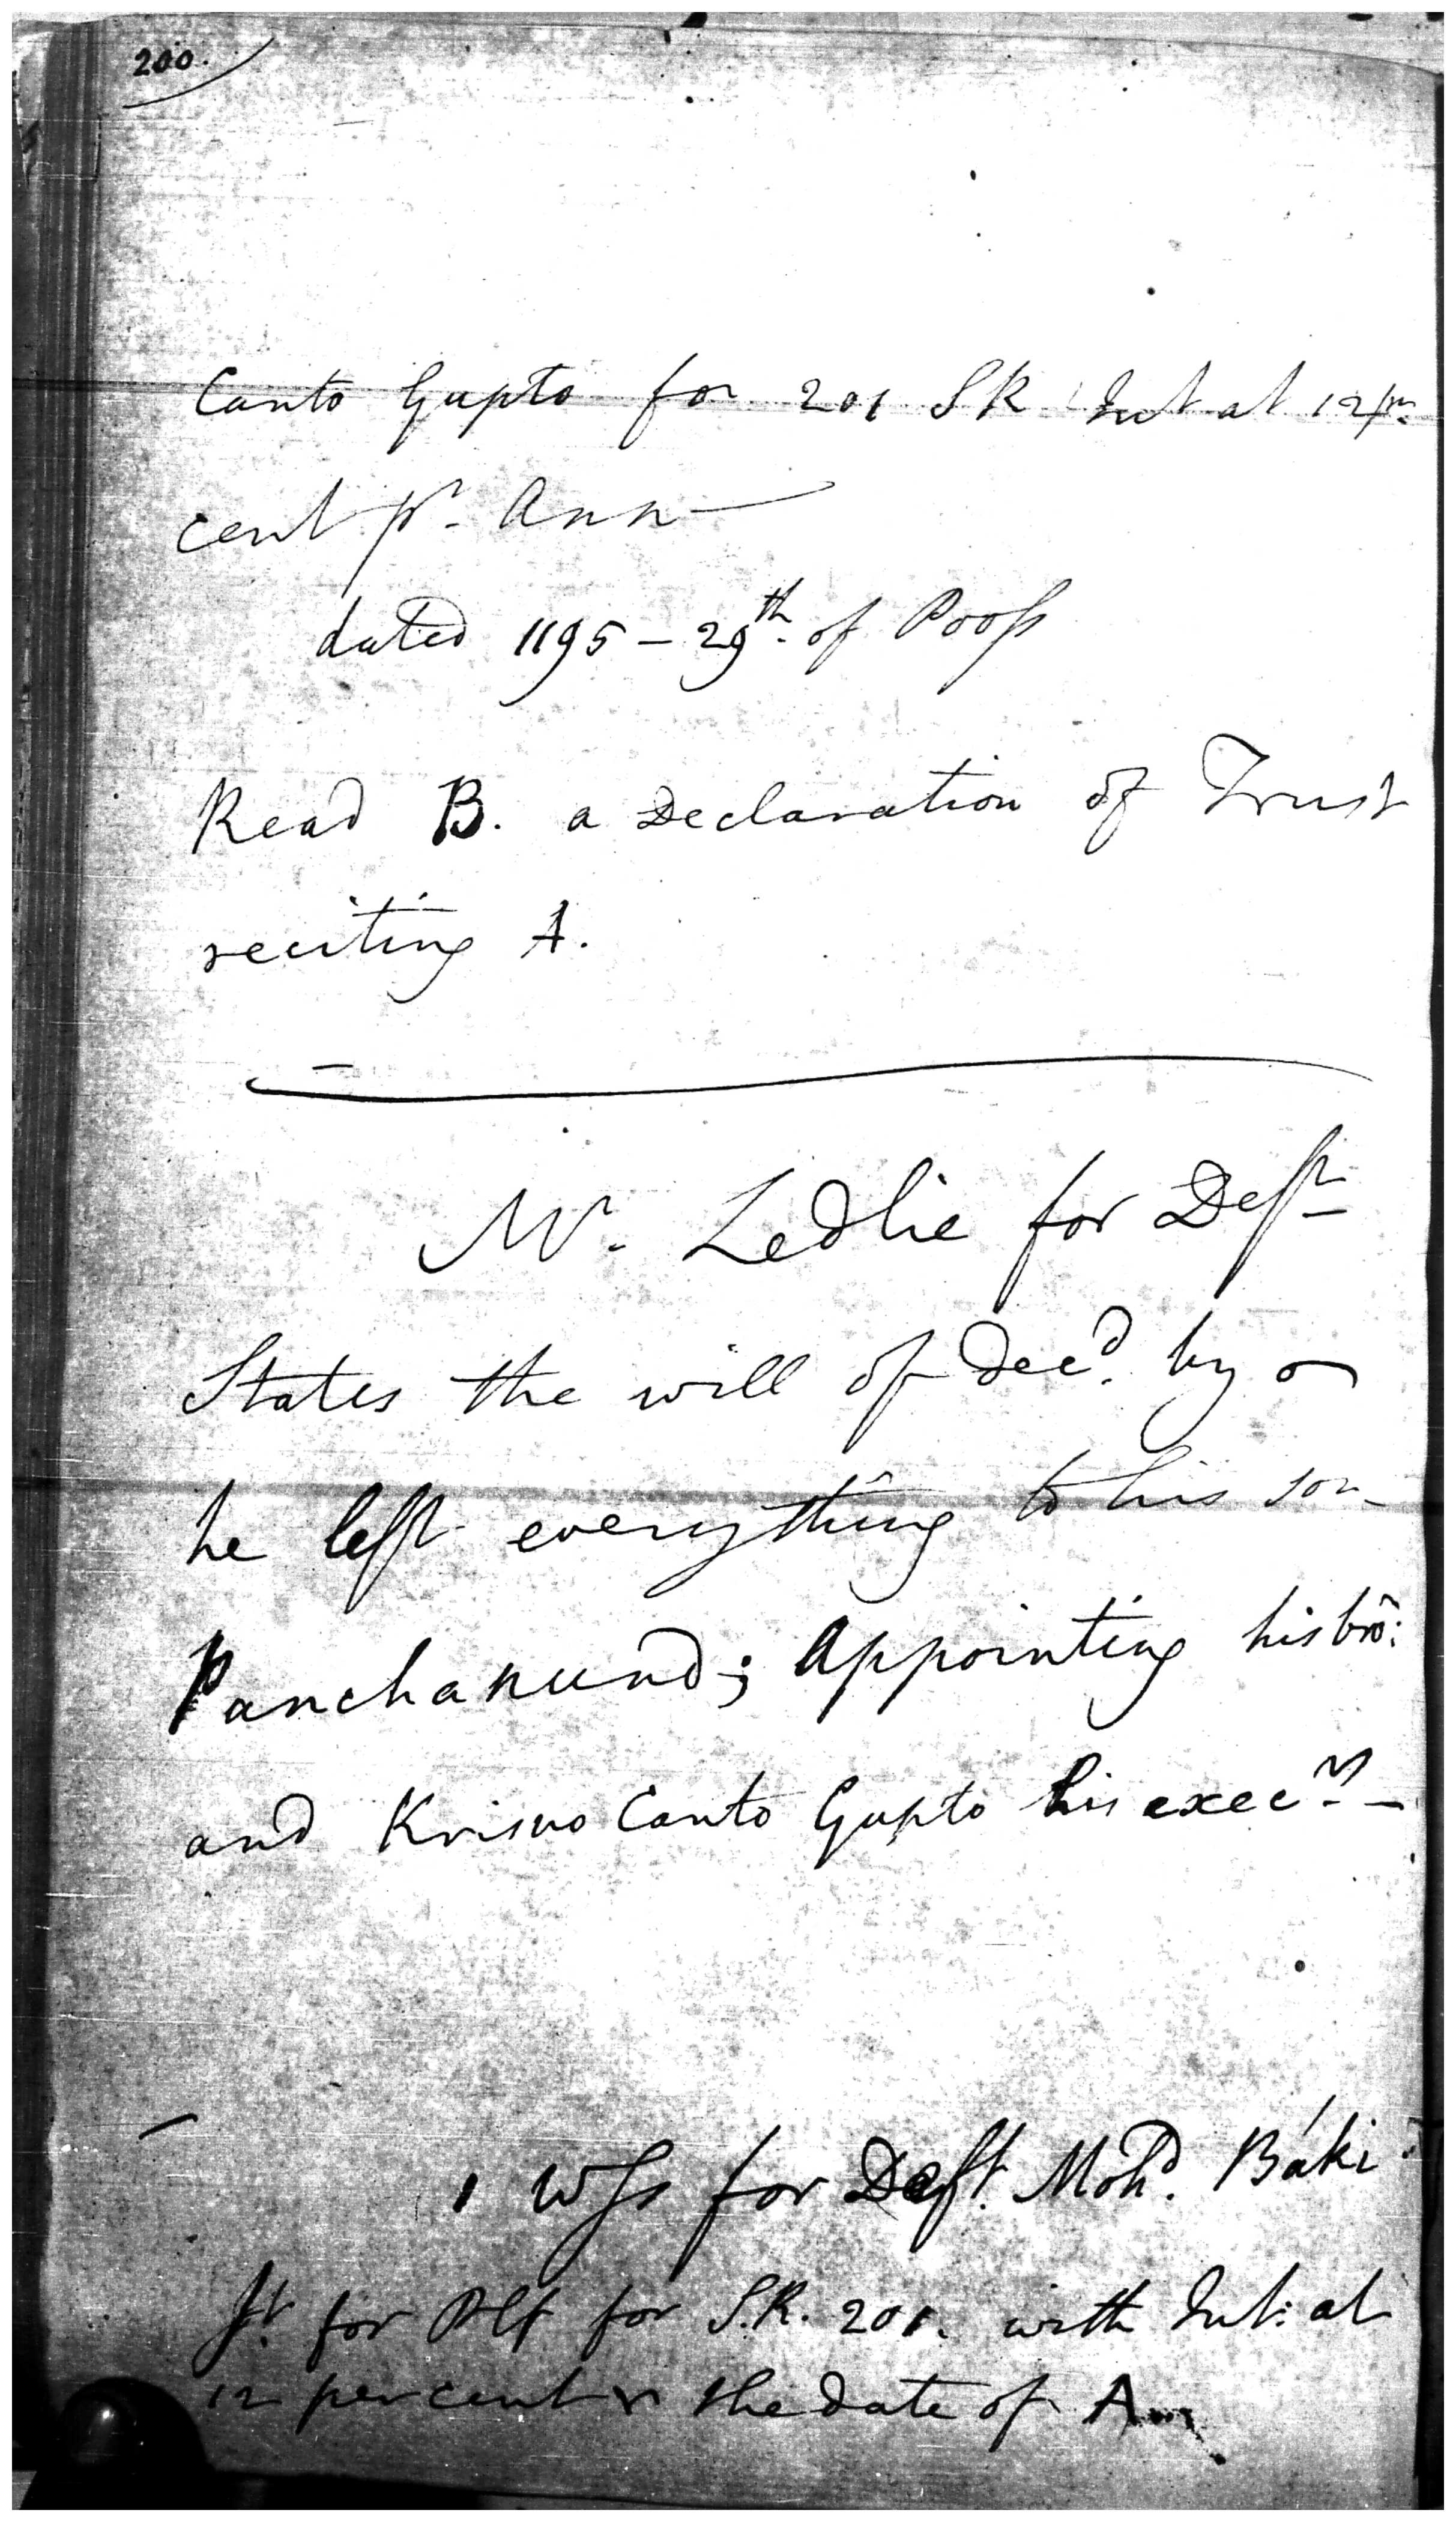 200.
Canto Gupto for 201 SR Int at 12 pr
cent pr. Ann
dated 1195 - 29th. of Pooss
Read B. a Declaration of Trust
reciting A.
Mr. Ledlie for Deft
States the will of Decd. by
he left everything to his son
Panchanund; Appointing his bro:
and Krisno Canto Gupto his execrs
1 Wss for Deft. Mohd. Báki
Jt. for Plf for S.R. 201. with Int: at
12 per cent the date of A